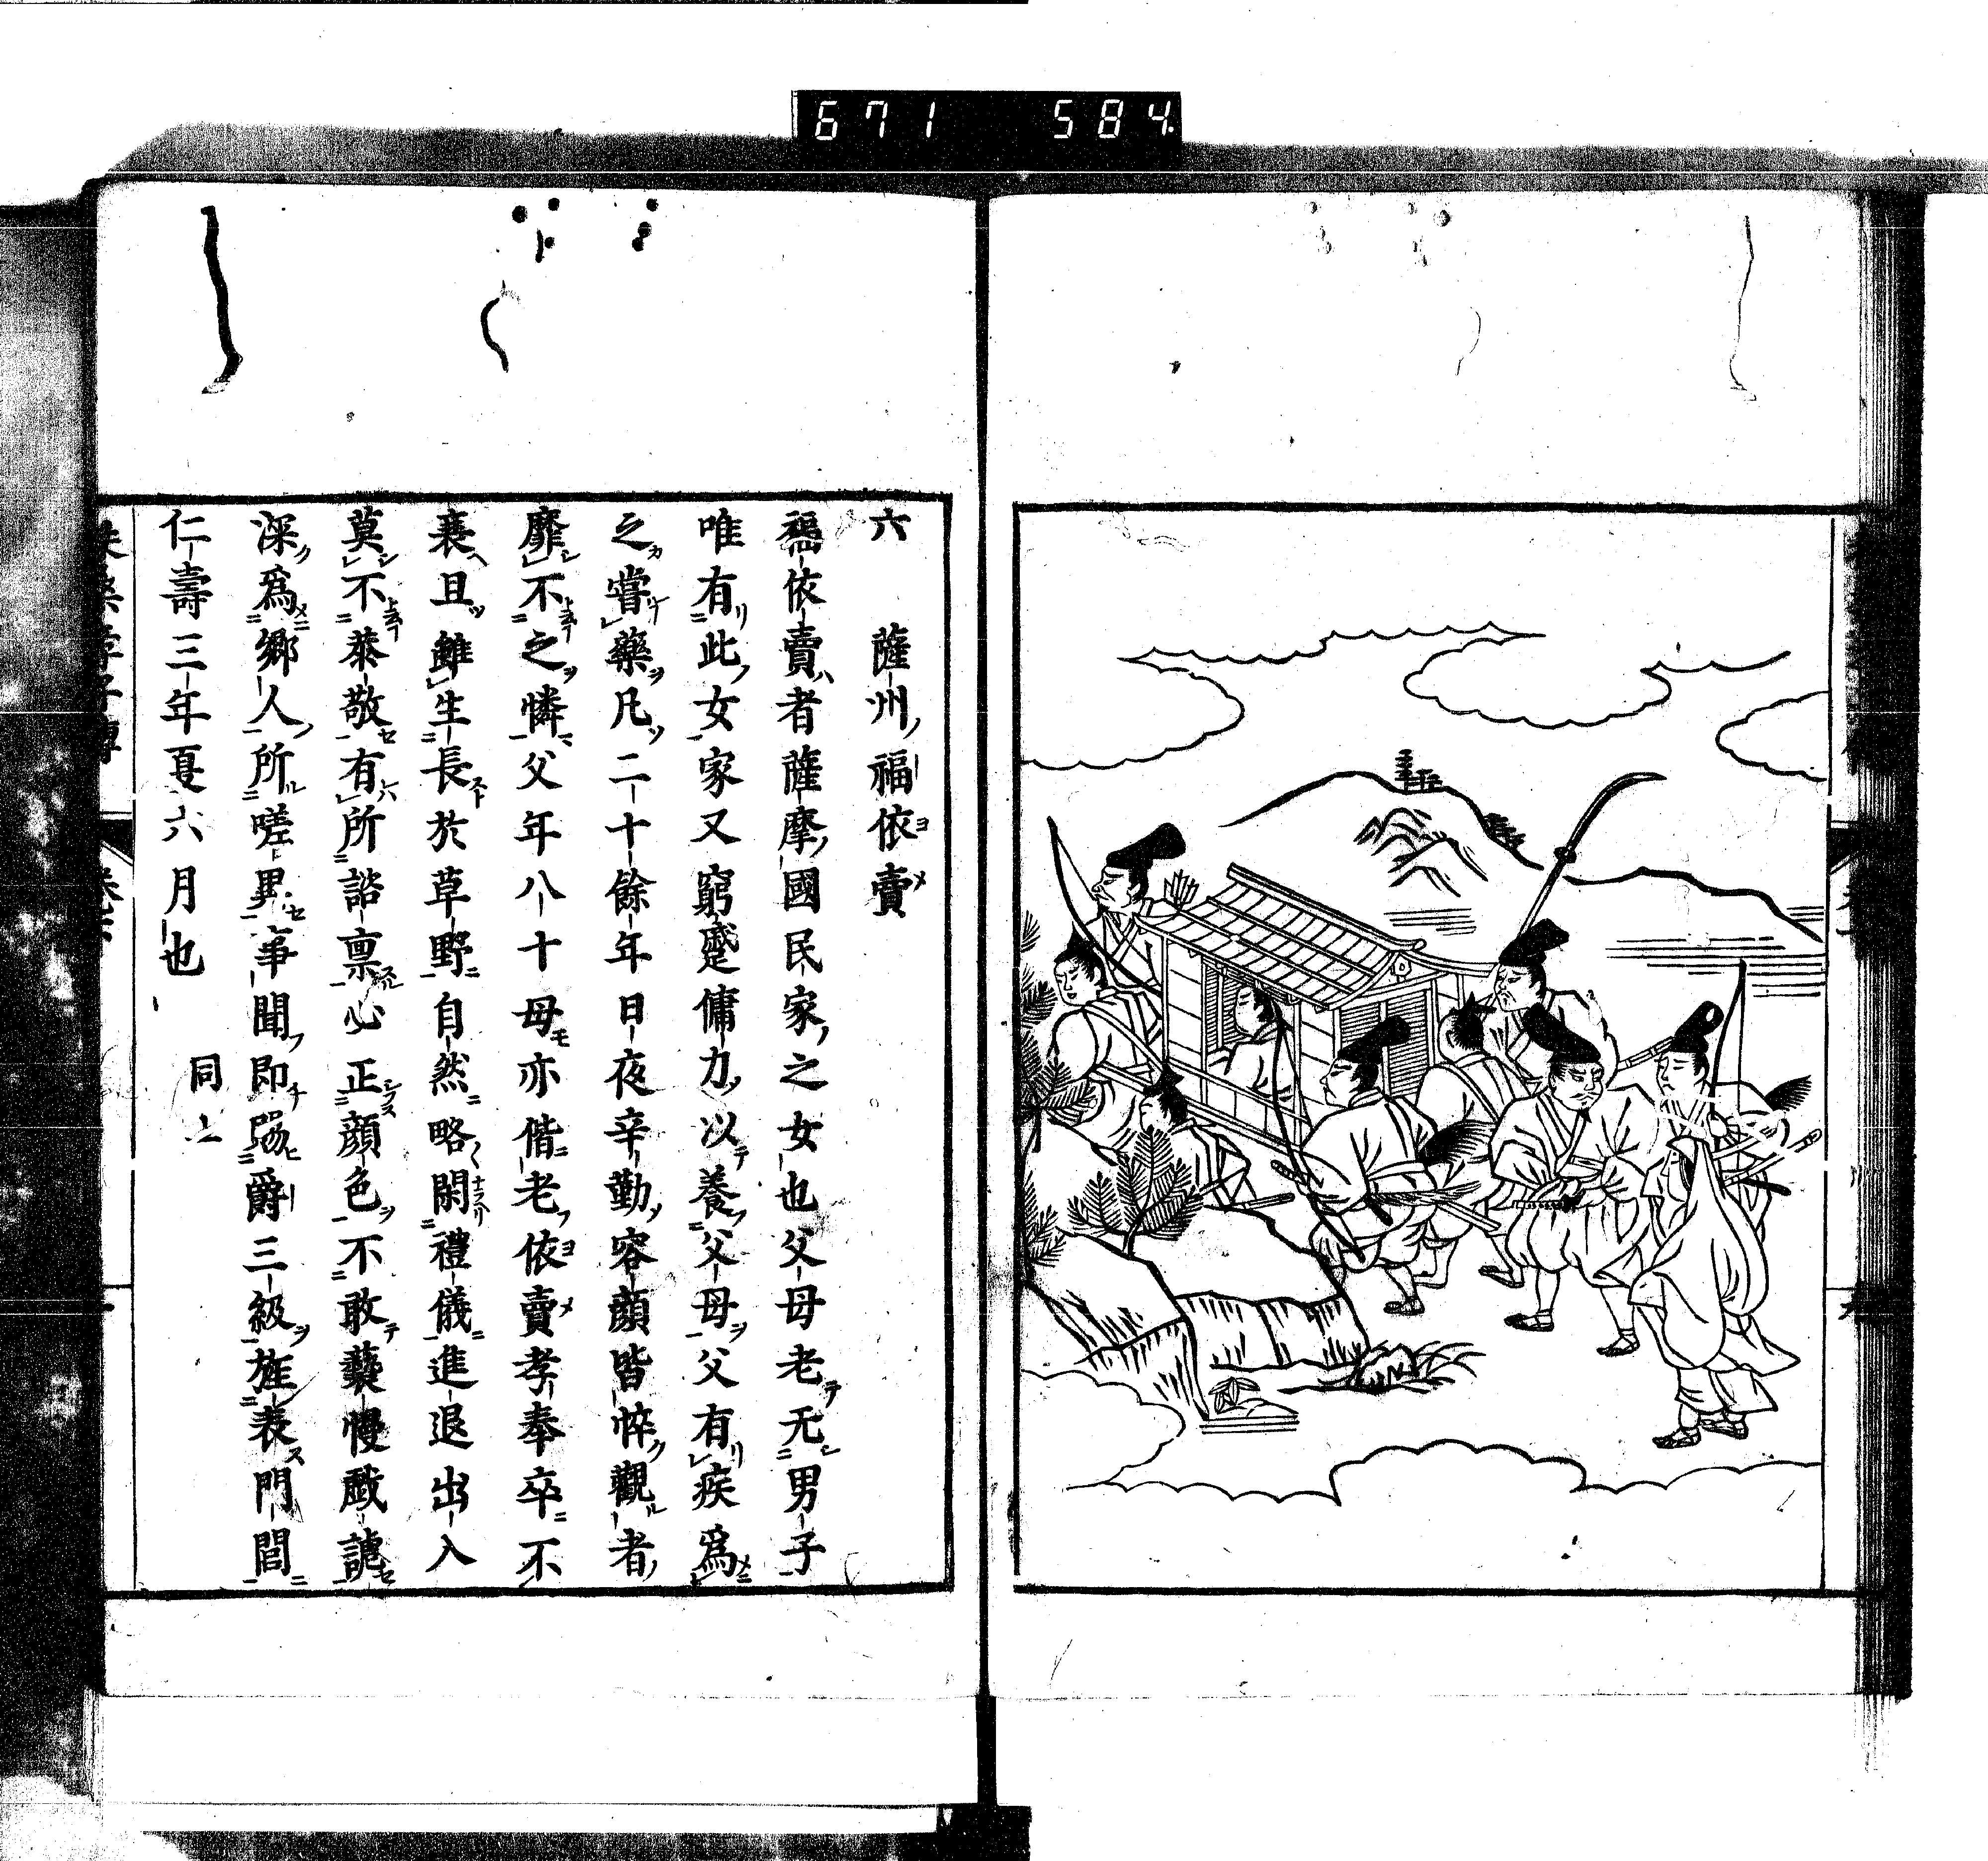 671 584
六 薩州福依賣
福依賣者薩摩國民家之女也父母老无男子
唯有此女家又窮蹙傭力以養父母父有疾爲
之嘗藥凡二十餘年日夜辛勤容顔皆悴觀者
靡不之憐父年八十母亦偕老依賣孝奉卒不
衰且雖生長於草野自然略閑禮儀進退出入
莫不恭敬有所諮禀必正顔色不敢褻慢戯謔
深爲鄉人所嗟異事聞即賜爵三級旌表門閭
仁壽三年夏六月也 同上